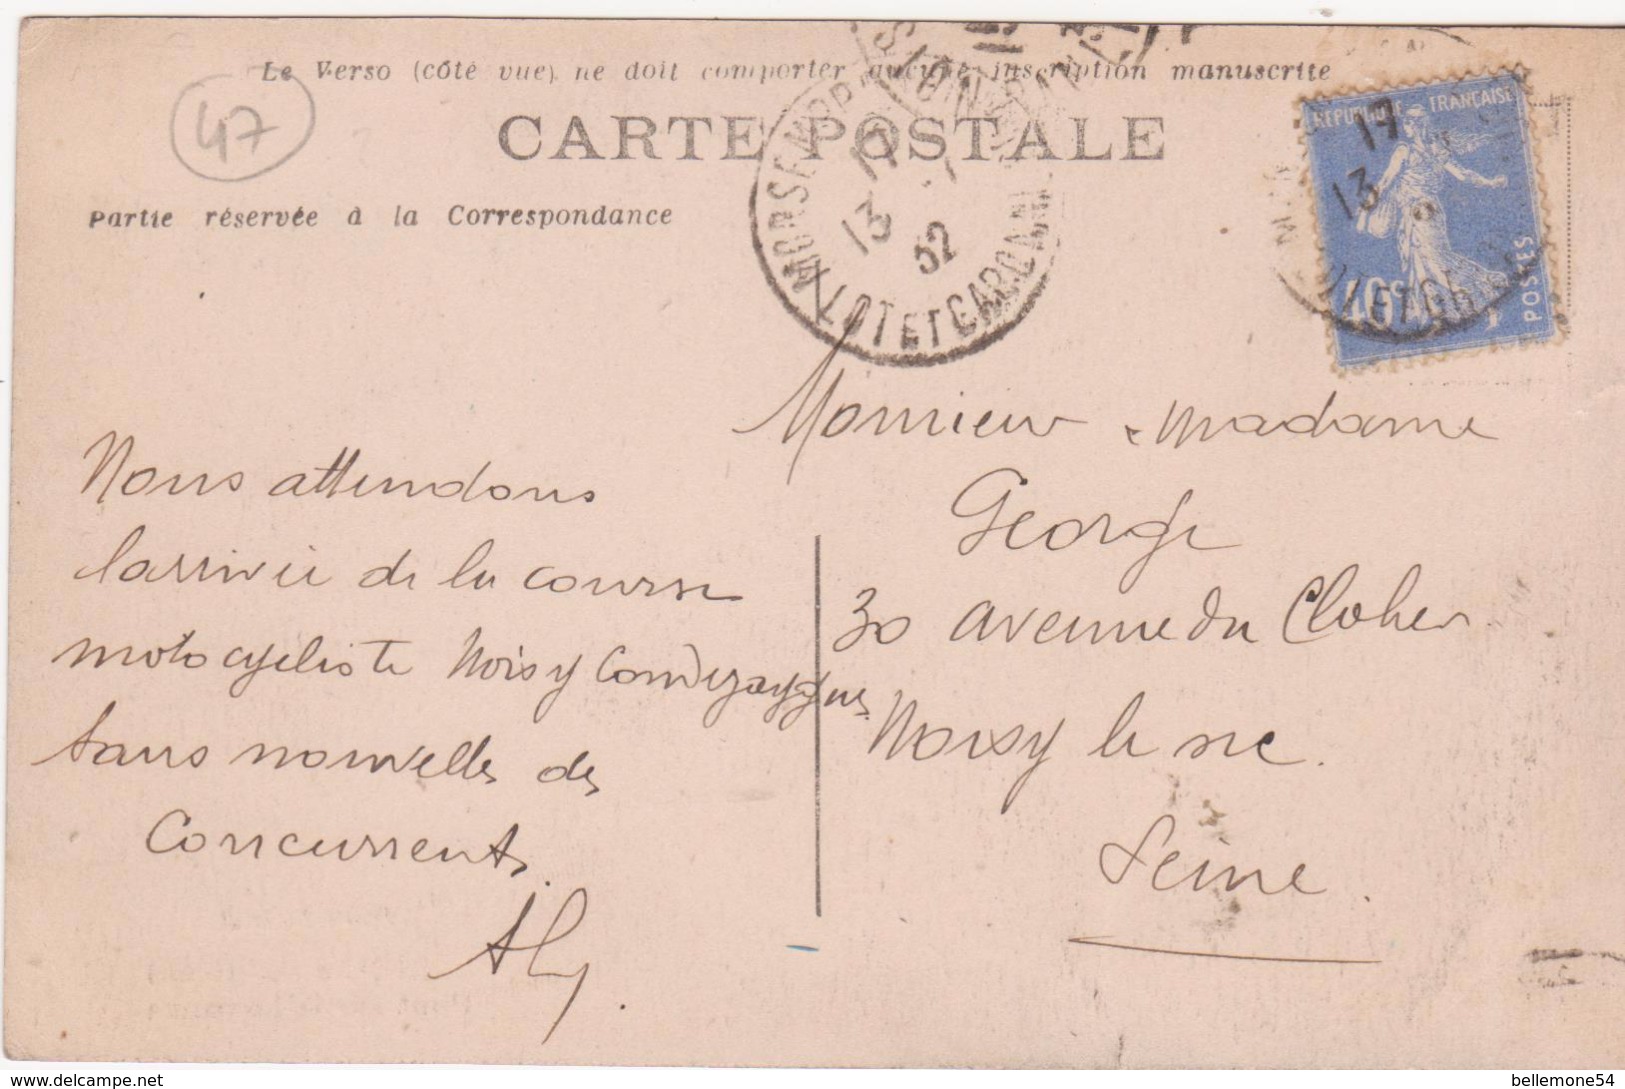 Le Verso (côté vue) ne doit comporter aucune inscription manuscrite
47
CARTE POSTALE
Partie réservée à la Correspondance
LOT ET GARONNE
13
32
REPUBLIQUE FRANÇAISE
13
40c
POSTES
Monsieur Madame
George
30 avenue du Clocher
Noisy le sec.
Seine.
Nous attendons
larrivée de la course
motocycliste Noisy
sans nouvelles des
Concurrents.
bellemone54
www.delcampe.net